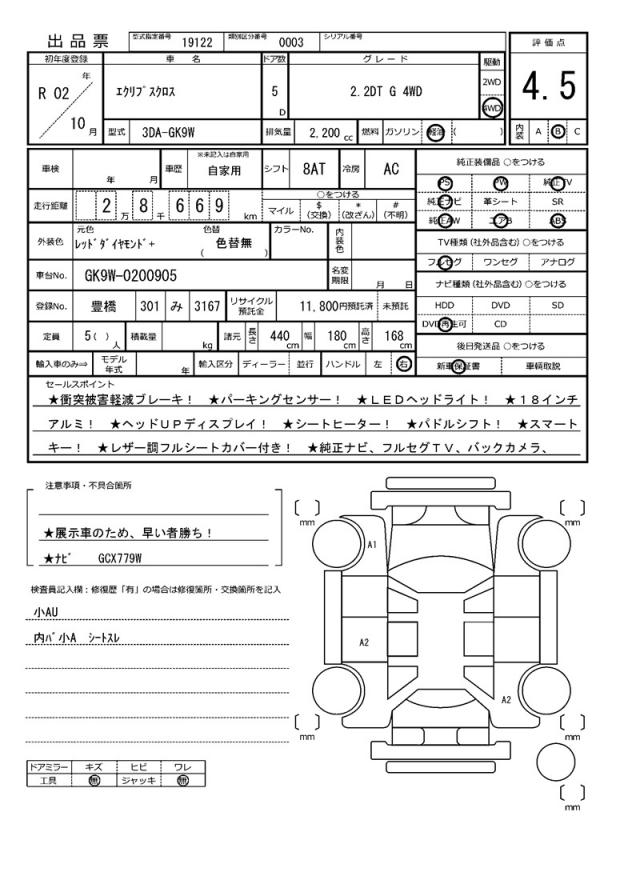 出品票 型式指定番号 19122 類別区分番号 0003 シリアル番号
評価点
4.5
内装 A B C
初年度登録 車名 ドア数 グレード 駆動
R 02 年 10 月 エクリプスクロス 5 D 2.2DT G 4WD 2WD 4WD
型式 3DA-GK9W 排気量 2,200 cc 燃料 ガソリン 軽油 ( )
車検 年 月 車歴 ※未記入は自家用 自家用 シフト 8AT 冷房 AC
走行距離 2 万 8 千 6 6 9 km ○をつける
マイル $ (交換) * (改ざん) # (不明)
外装色 元色 レッドダイヤモンド+ 色替 ( 色替無 ) カラーNo. 内装色
車台No. GK9W-0200905 名変期限 月 日
登録No. 豊橋 301 み 3167 リサイクル預託金 11,800円預託済 未預託
定員 5( ) 人 積載量 kg 諸元 長さ 440 cm 幅 180 cm 高さ 168 cm
輸入車のみ⇒ モデル年式 年 輸入区分 ディーラー 並行 ハンドル 左 右
純正装備品 ○をつける
PS PW 純正TV
純正ナビ 革シート SR
純正AW エアB ABS
TV種類 (社外品含む) ○をつける
フルセグ ワンセグ アナログ
ナビ種類 (社外品含む) ○をつける
HDD DVD SD
DVD再生可 CD
後日発送品 ○をつける
新車保証書 車輌取説
セールスポイント
★衝突被害軽減ブレーキ! ★パーキングセンサー! ★LEDヘッドライト! ★18インチ
アルミ! ★ヘッドUPディスプレイ! ★シートヒーター! ★パドルシフト! ★スマート
キー! ★レザー調フルシートカバー付き! ★純正ナビ、フルセグTV、バックカメラ、
注意事項・不具合箇所
★展示車のため、早い者勝ち!
★ナビ GCX779W
検査員記入欄:修復歴「有」の場合は修復箇所・交換箇所を記入
小AU
内バ小A シートスレ
ドアミラー キズ ヒビ ワレ
工具 無 ジャッキ 無
mm mm
A1
A2
A2
mm mm
mm